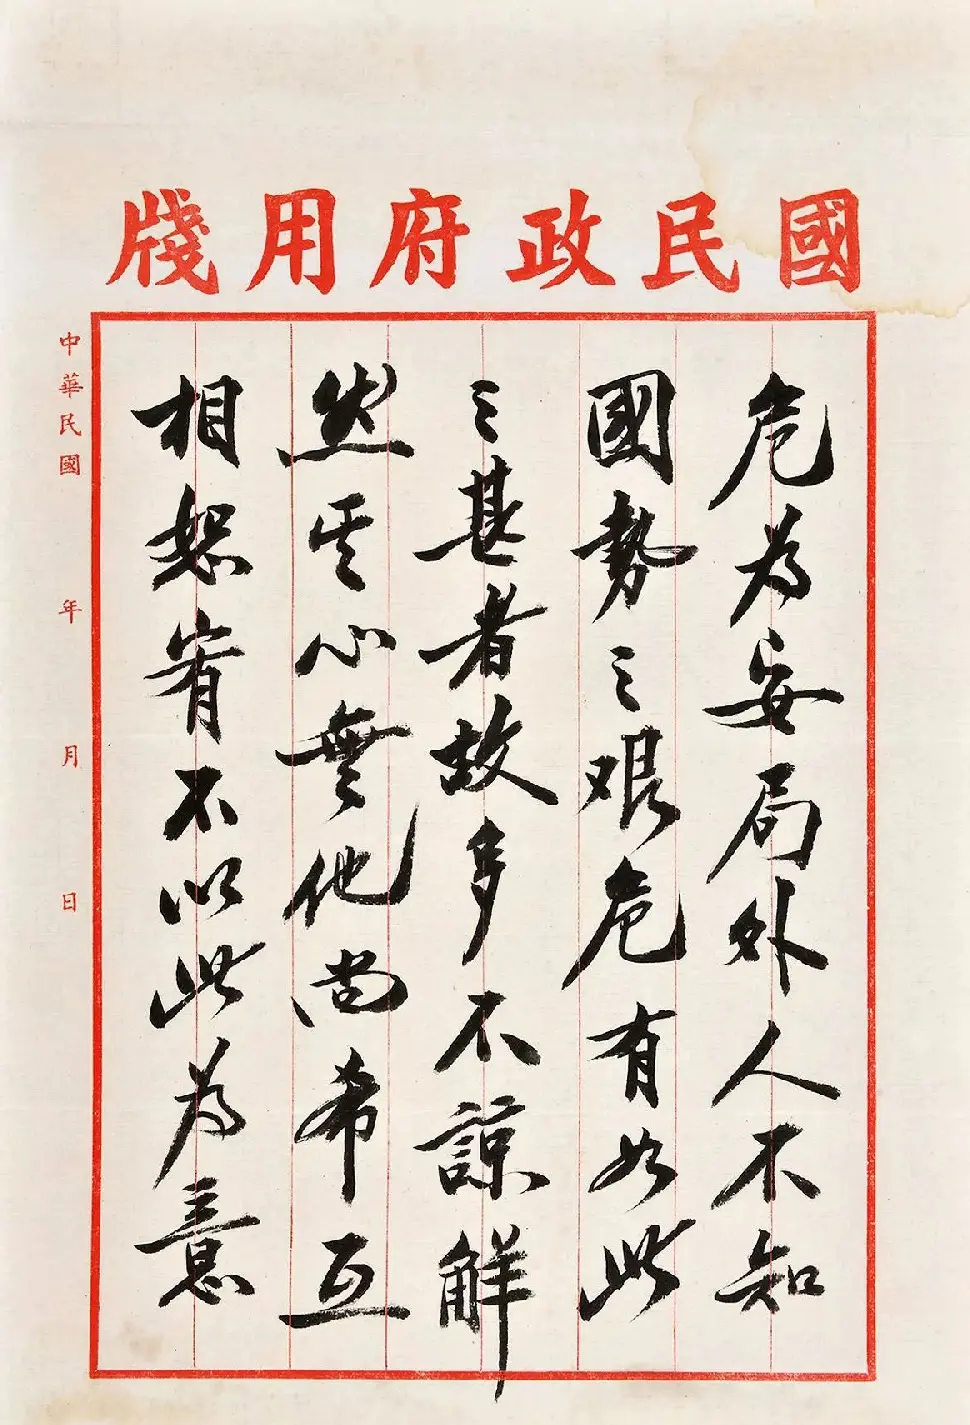 國民政府用牋
危為安局外人不知
國勢之艱危有如此
之甚者故多不諒解
然其心無他尚希互
相恕宥不以此為意
中華民國 年 月 日